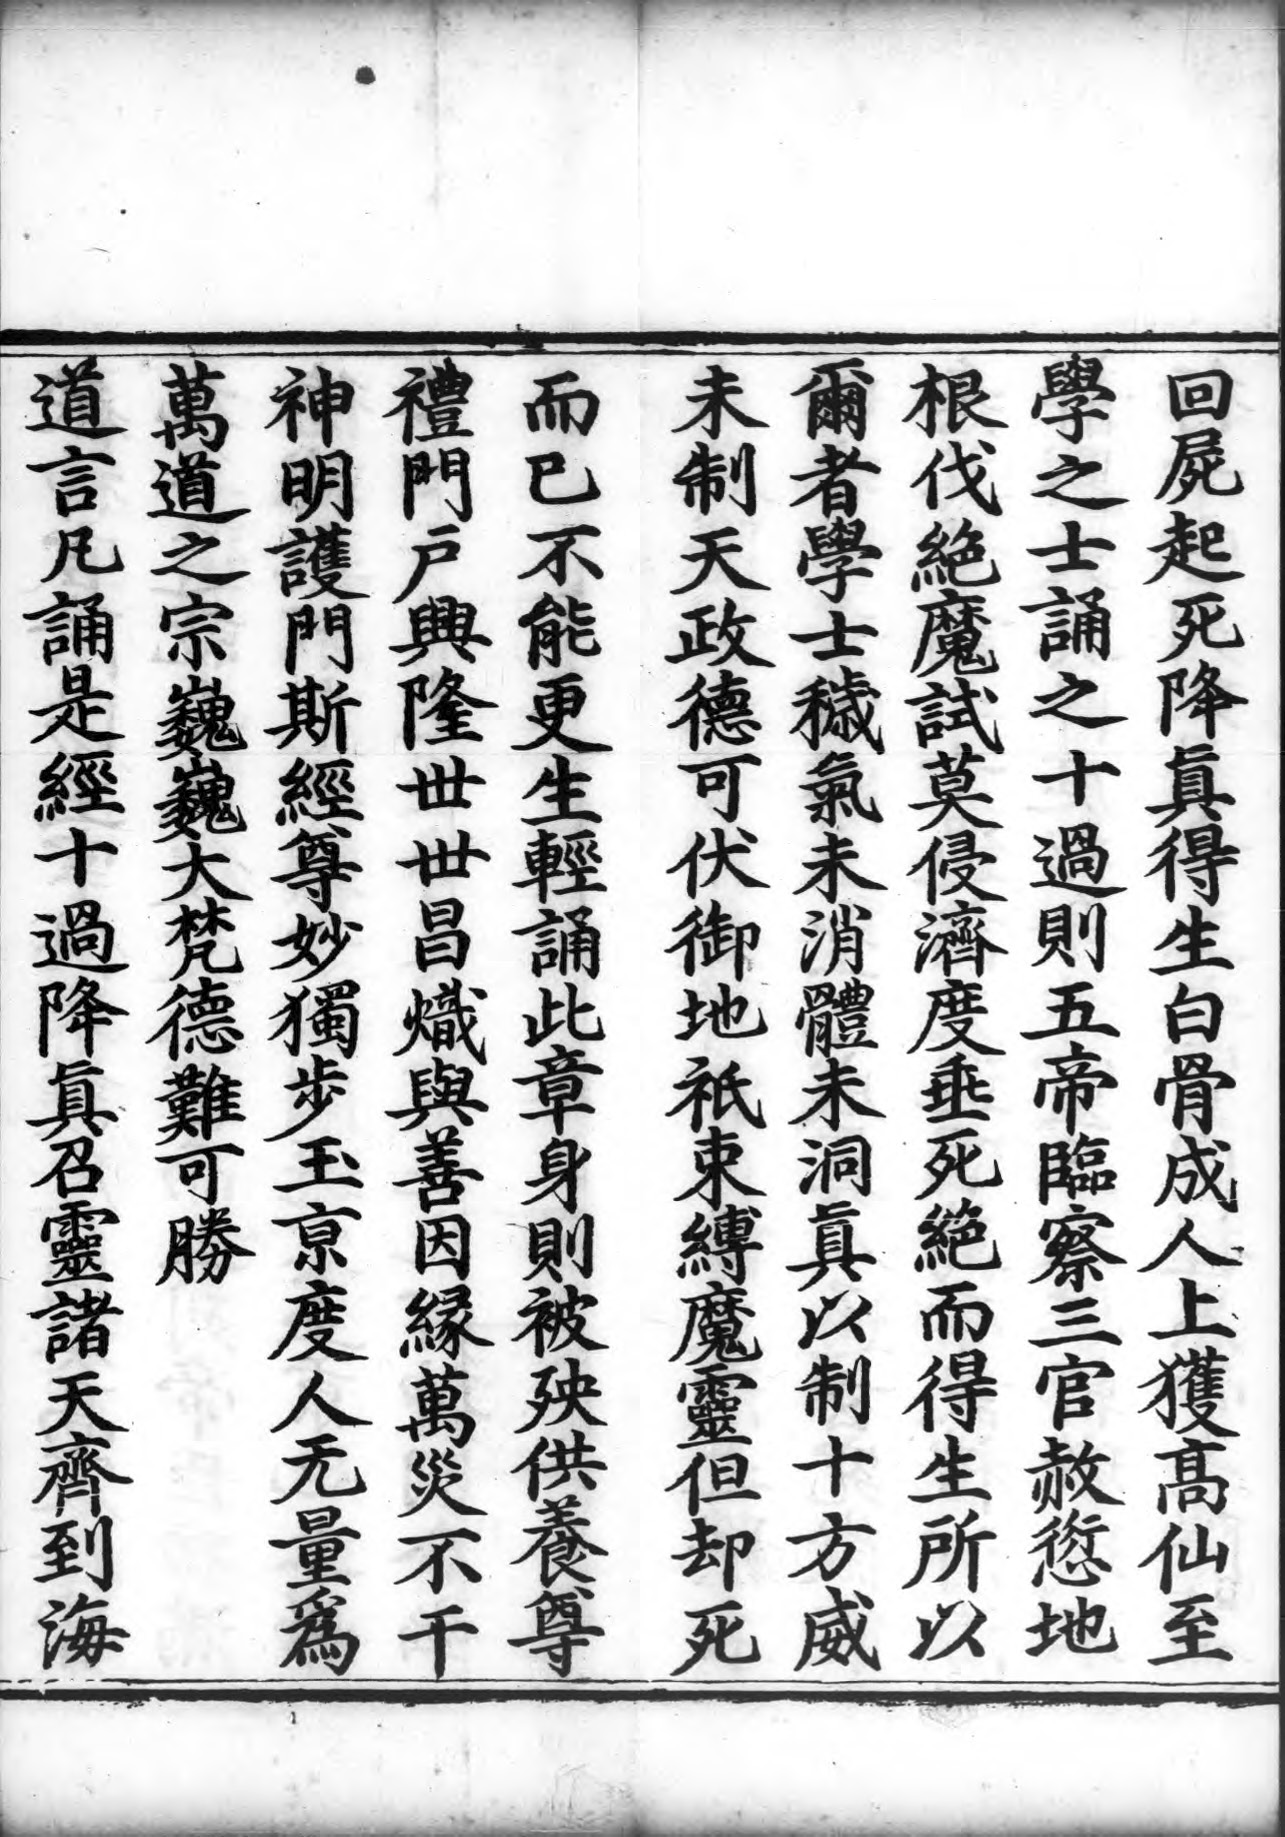 回屍起死降眞得生白骨成人上獲髙仙至
學之士誦之十過則五帝臨察三官赦愆地
根伐絶魔試莫侵濟度垂死絶而得生所以
爾者學士穢氣未消體未洞眞以制十方威
未制天政德可伏御地祇束縛魔靈但却死
而已不能更生輕誦此章身則被殃供養尊
禮門戶興隆世世昌熾與善因縁萬災不干
神明護門斯經尊妙獨步玉京度人无量爲
萬道之宗巍巍大梵德難可勝
道言凡誦是經十過降眞召靈諸天齊到海